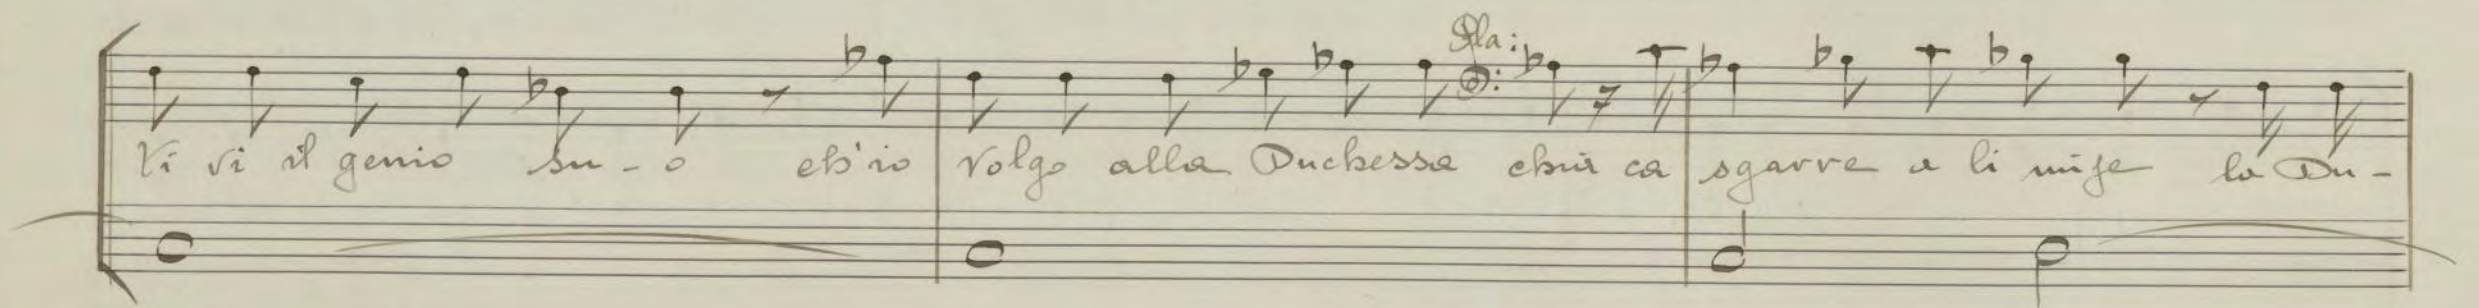 Pla:
Vi vi il genio su - o ch'io volgo alla Duchessa chiù ca sgarre a li mise la Du -